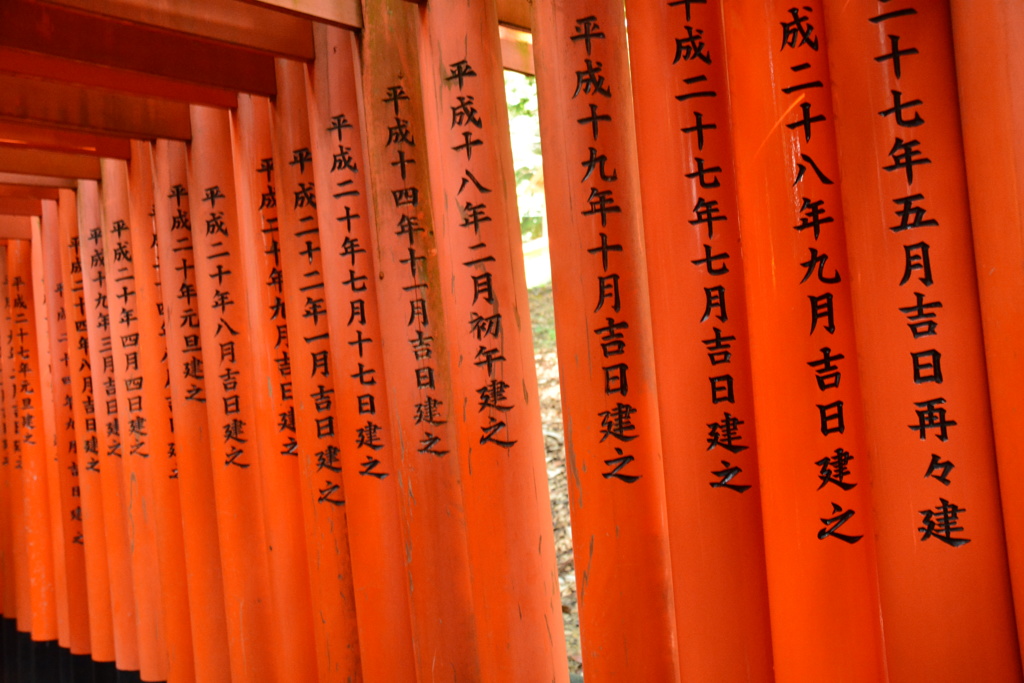 二十七年五月吉日再々建
成二十八年九月吉日建之
平成二十七年七月吉日建之
平成十九年十月吉日建之
平成十八年二月初午建之
平成十四年十一月吉日建之
平成二十年七月十七日建之
平成二十二年一月吉日建之
平成二十年九月吉日建之
平成二十年八月吉日建之
平成二十年元旦建之
平成二十年四月四日建之
平成十九年三月吉日建之
平成二十四年八月吉日建之
平成二十七年元旦建之